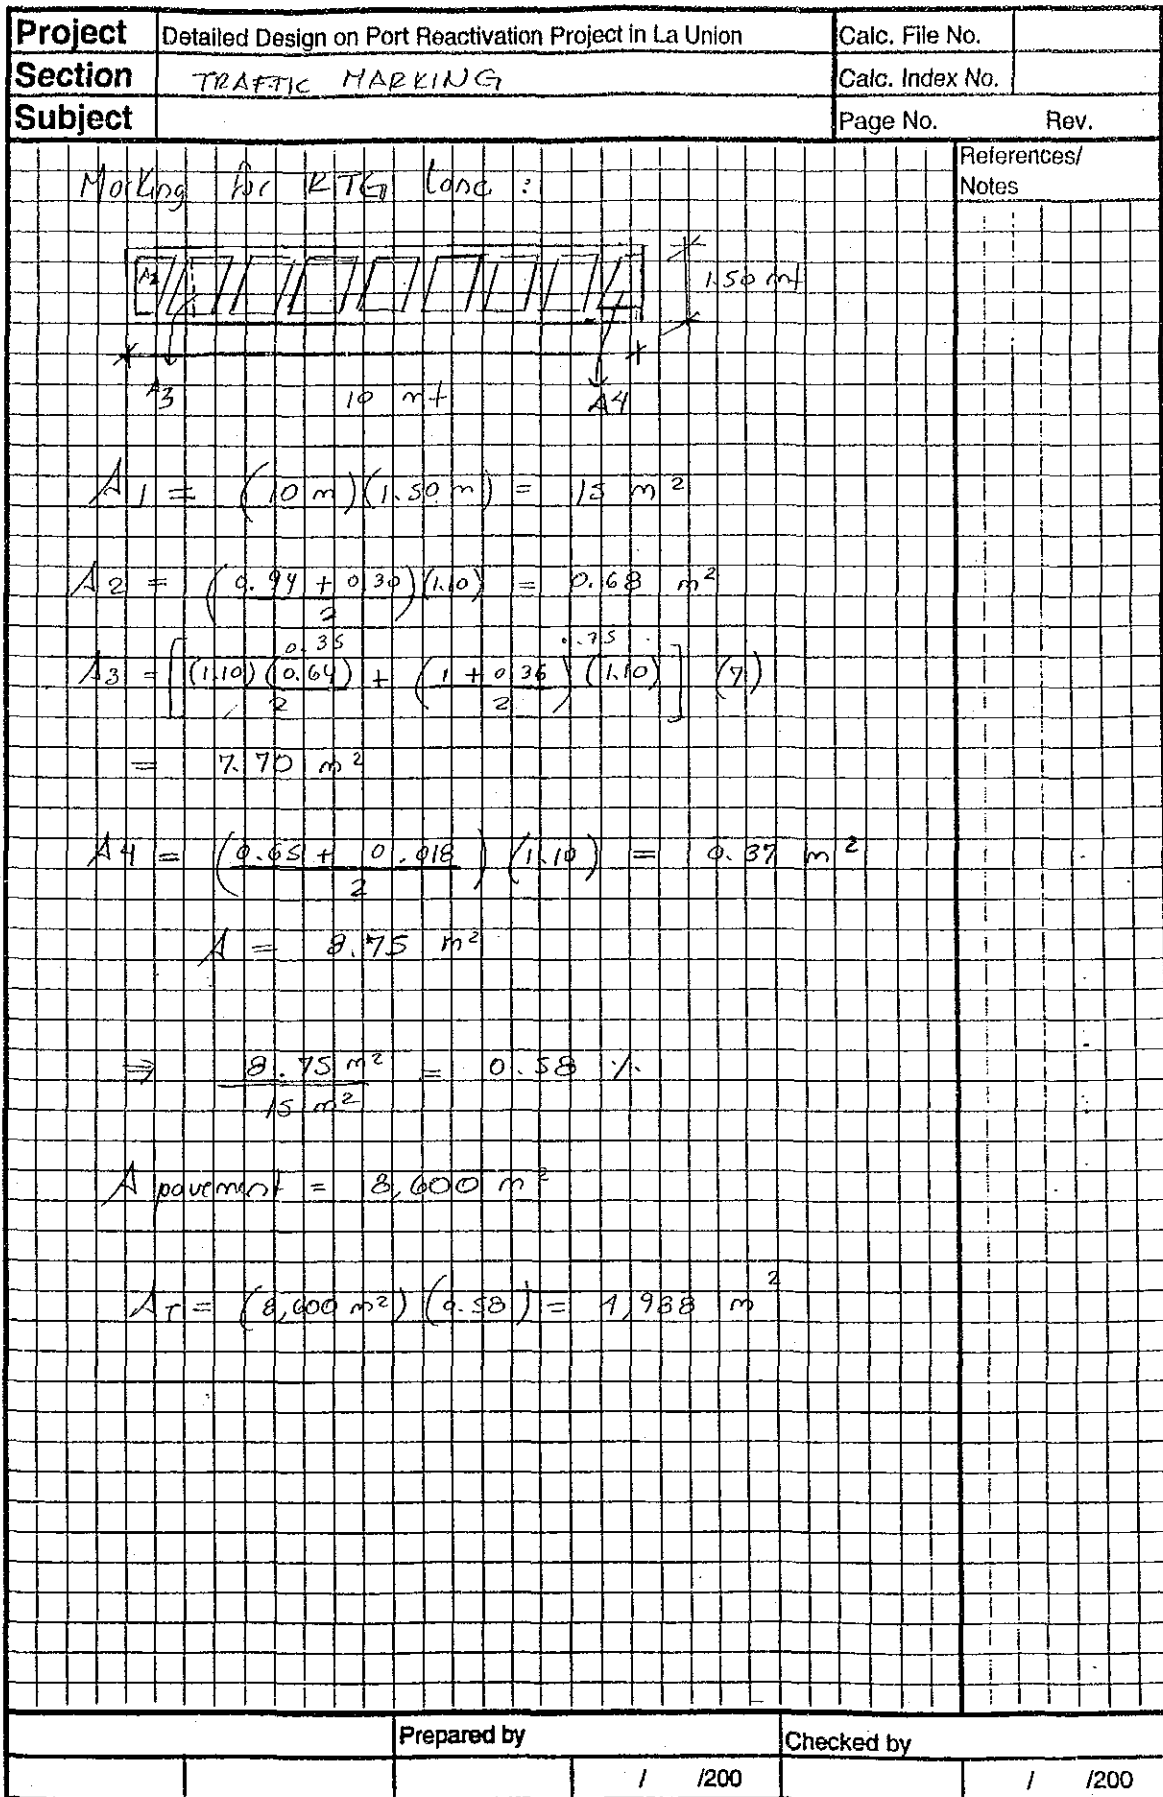 Project Detailed Design on Port Reactivation Project in La Union Calc. File No.
Section TRAFFIC MARKING Calc. Index No.
Subject Page No. Rev.
References/
Notes
Marking for RTG lane :
A2
1.50 mt
A3 10 mt A4
A1 = (10 m)(1.50 m) = 15 m²
A2 = (0.94 + 0.30 / 2)(1.10) = 0.68 m²
0.35 0.75
A3 = [(1.10)(0.64) / 2 + (1 + 0.36 / 2)(1.10)] (7)
= 7.70 m²
A4 = (0.65 + 0.018 / 2)(1.10) = 0.37 m²
A = 8.75 m²
⇒ 8.75 m² / 15 m² = 0.58 %
A pavement = 8,600 m²
AT = (8,600 m²)(0.58) = 4,988 m²
Prepared by Checked by
/ /200 / /200